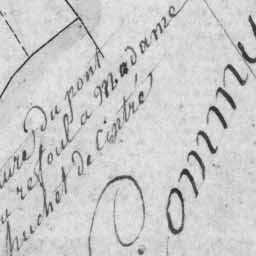 du pont
refoul a Madame
huchet de Cintré
Commu